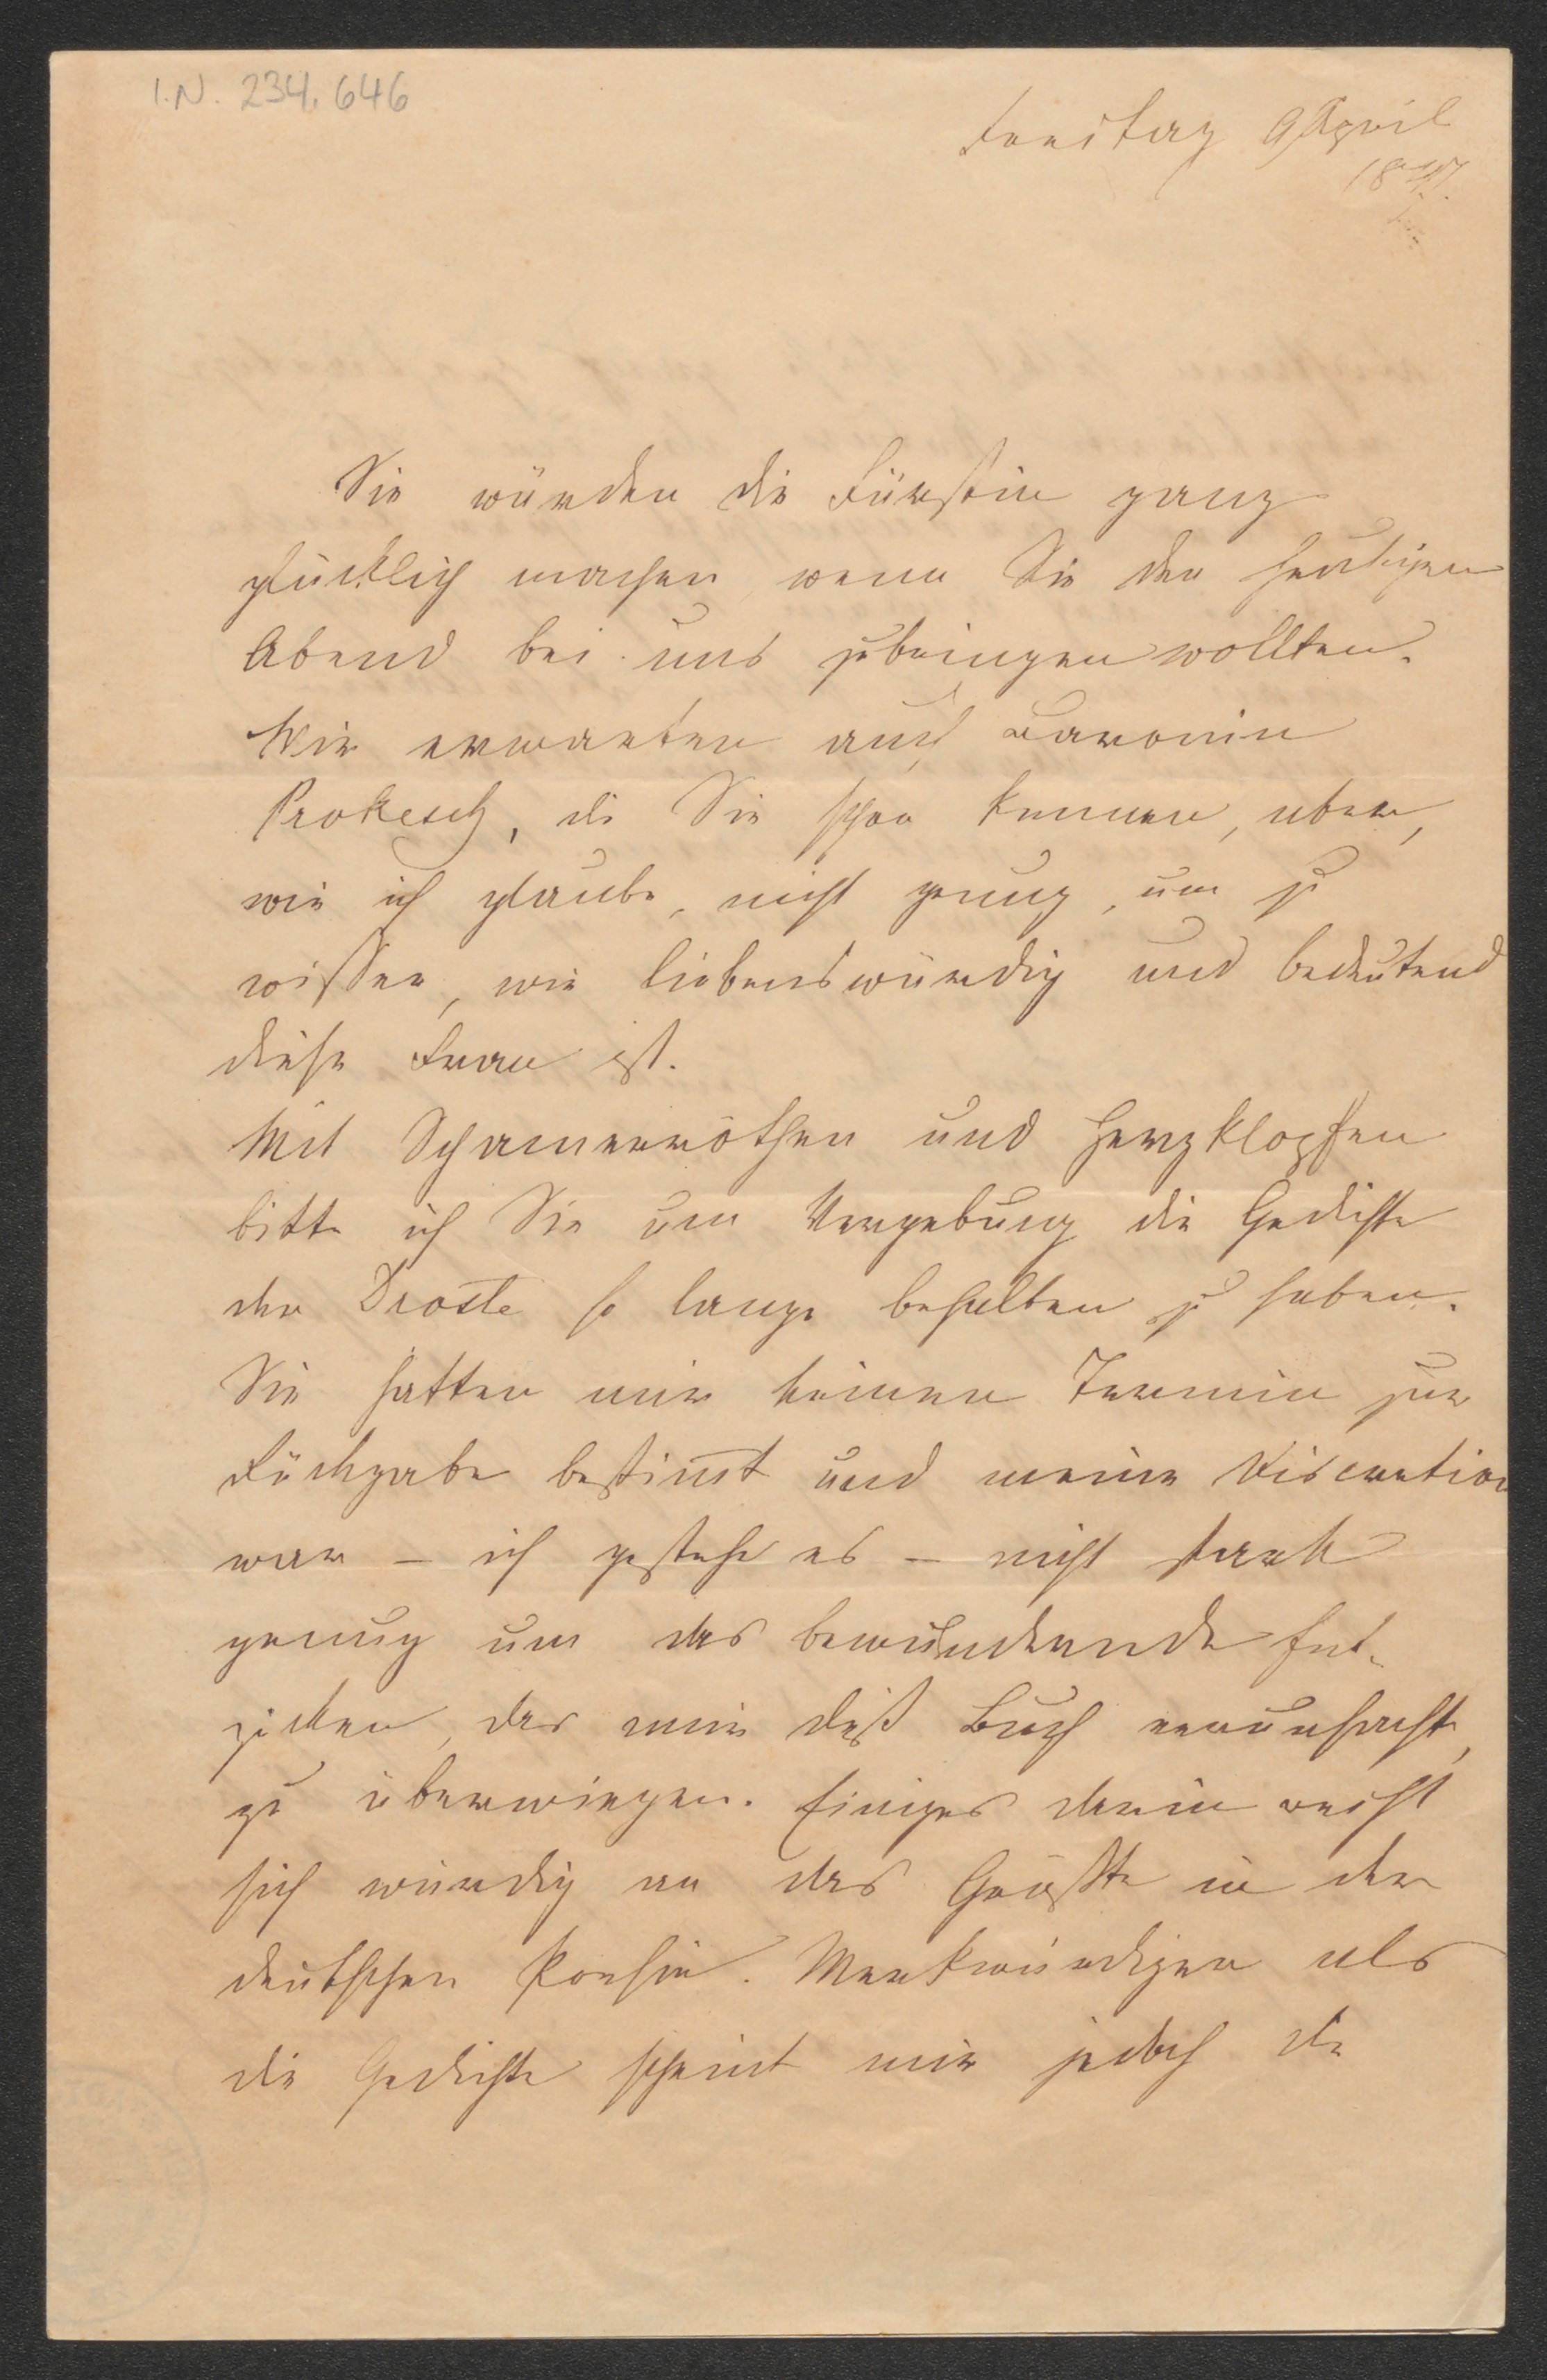 I.N. 234.646
Freitag 9 April
Sie würden die Fürstin ganz
glücklich machen wenn Sie den heutigen
Abend bei uns zubringen wollten.
Wir erwarten auch Baronin
Prokesch, die Sie schon kennen, aber,
wie ich glaube, nicht genug, um zu
wissen, wie liebenswürdig und bedeutend
diese Frau ist.
Mit Schamerröthen und Herzklopfen
bitte ich Sie um Vergebung die Gedichte
der Droste so lange behalten zu haben.
Sie hatten mir keinen Termin zur
Rückgabe bestimt und meine Discretion
war – ich gestehe es – nicht stark
genug um das bewundernde Ent-
zücken, das mir dieß Buch verursacht,
zu überwiegen. Einiges darin reiht
sich würdig an das Größte in der
deutschen Poesie. Merkwürdiger als
die Gedichte scheint mir jedoch die